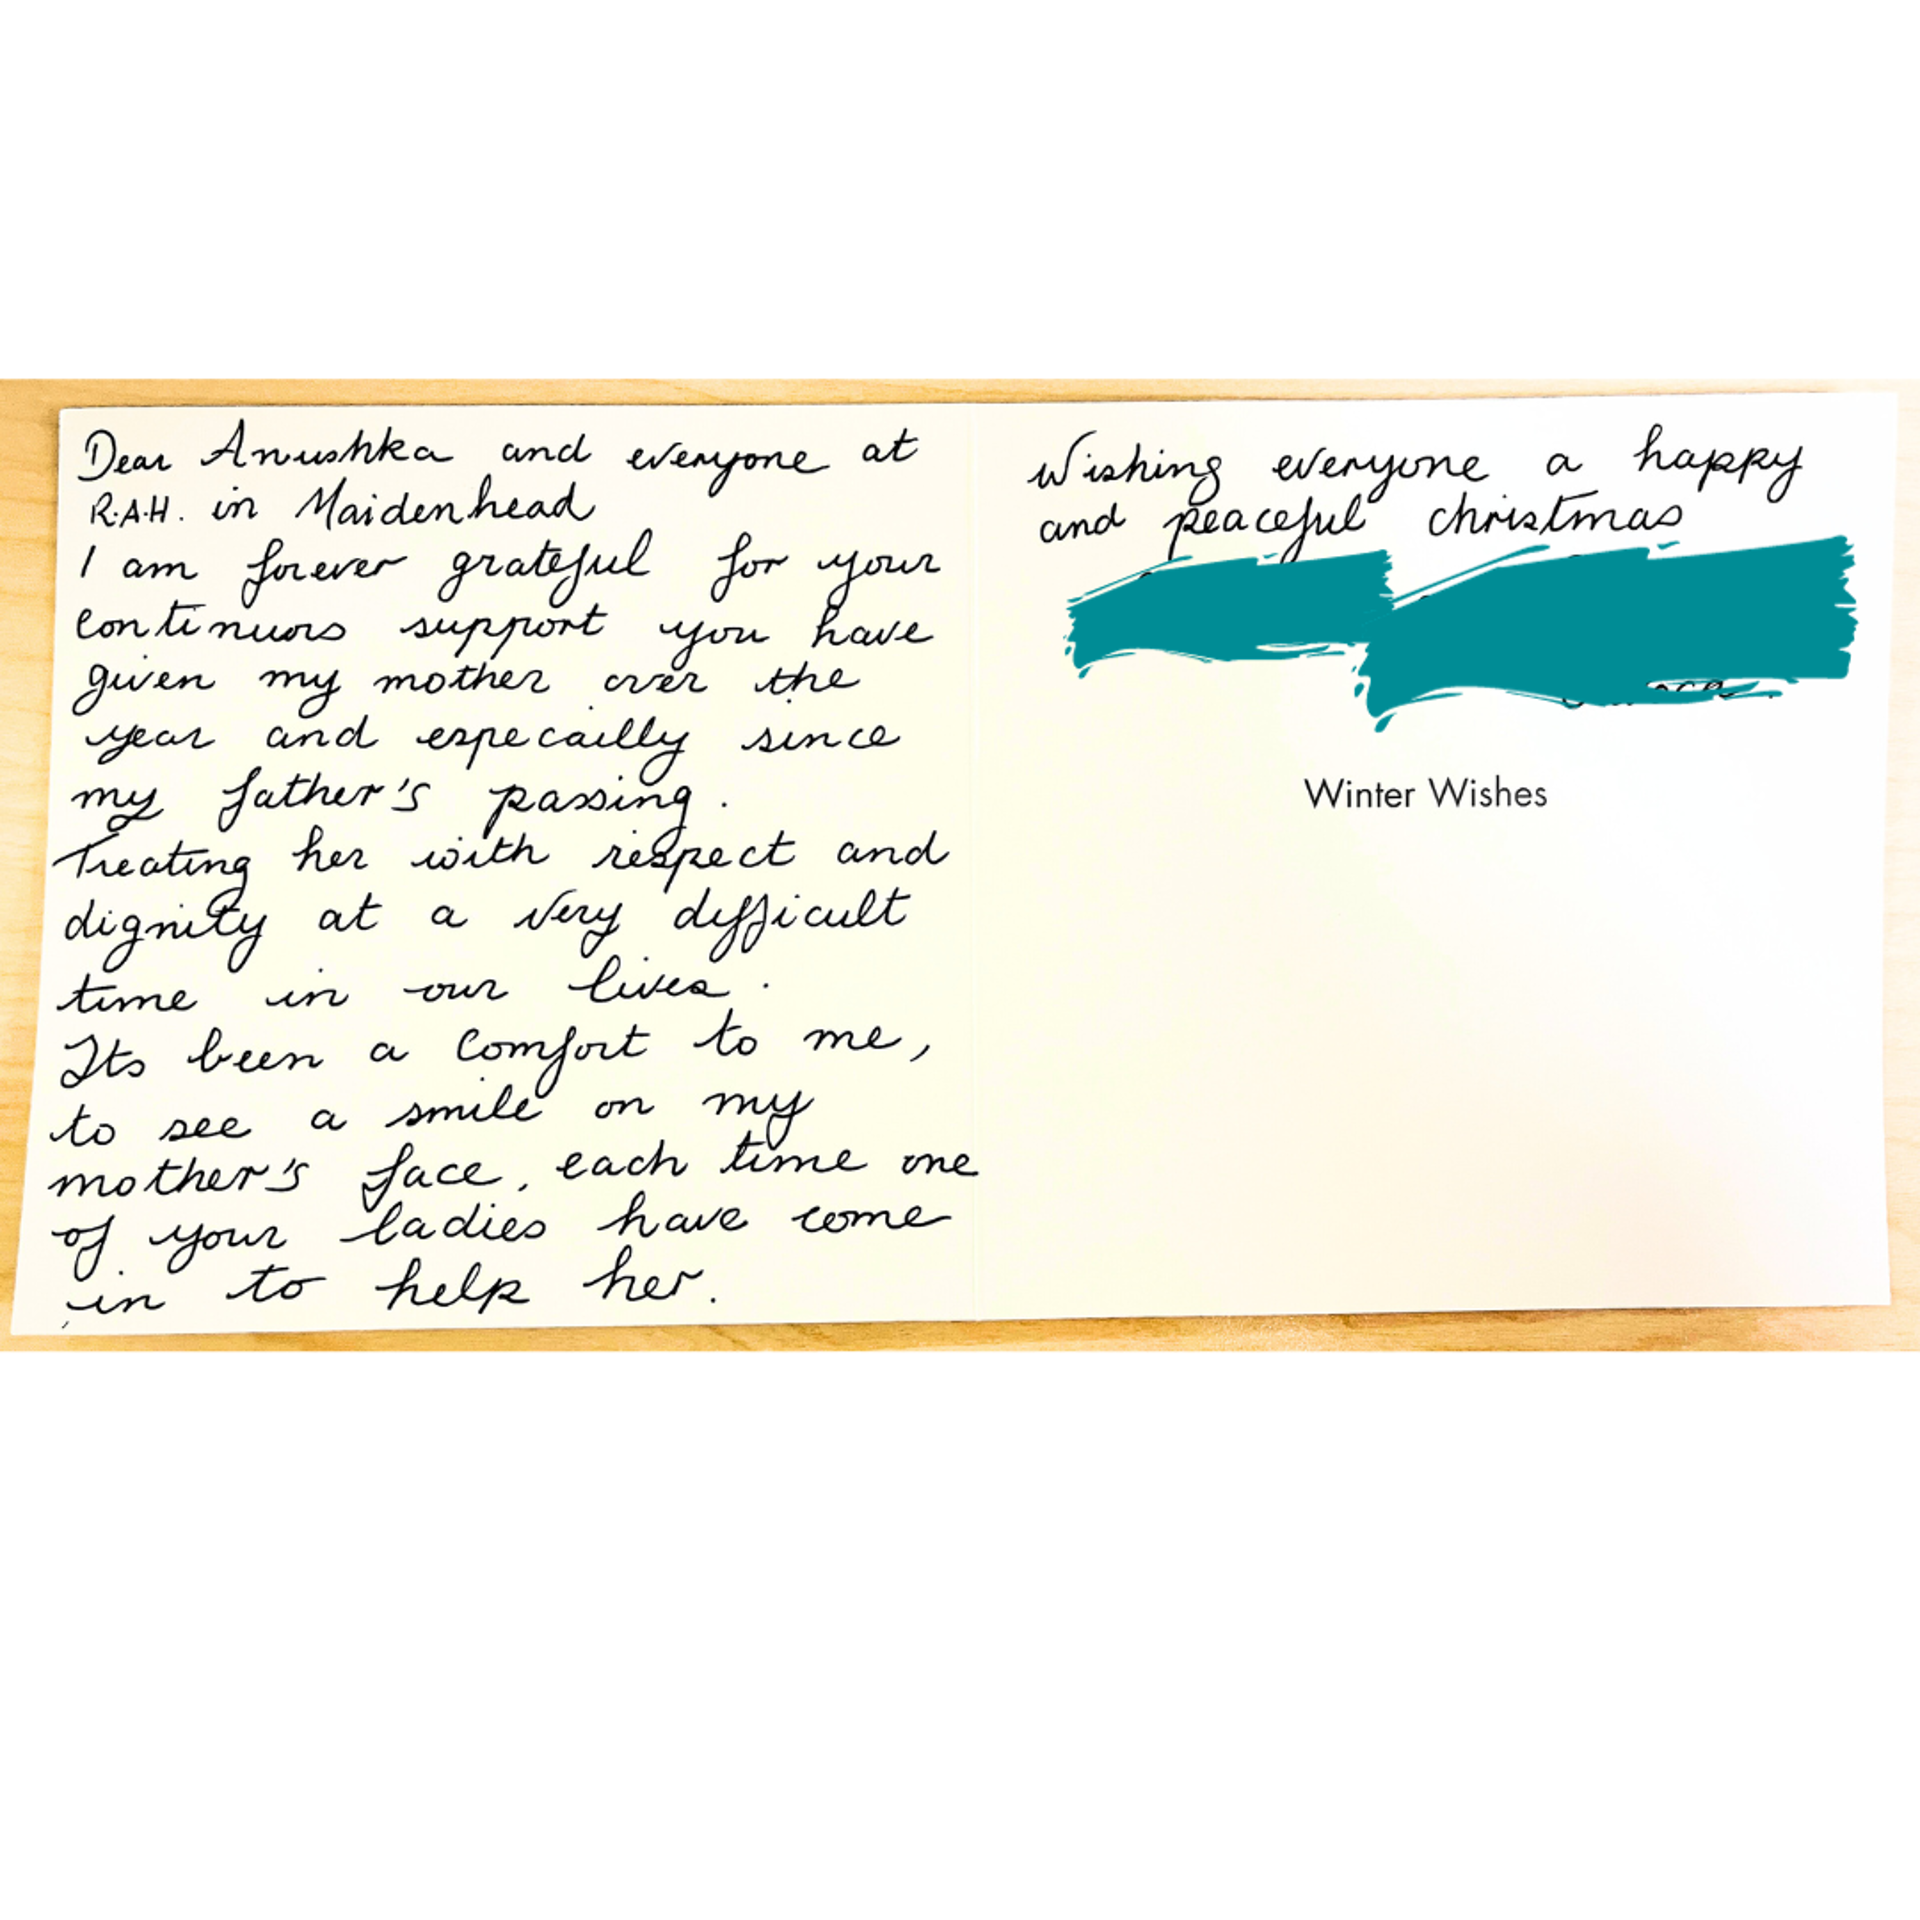 Dear Anushka and everyone at
R.A.H. in Maidenhead
I am forever grateful for your
continuos support you have
given my mother over the
year and especailly since
my father's passing.
Treating her with respect and
dignity at a very difficult
time in our lives.
Its been a comfort to me,
to see a smile on my
mother's face, each time one
of your ladies have come
in to help her.
Wishing everyone a happy
and peaceful christmas
Winter Wishes